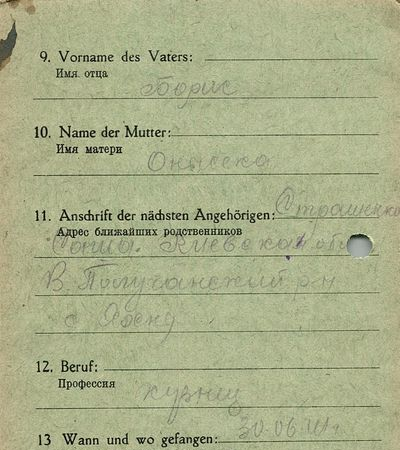 9. Vorname des Vaters:
Имя отца
Борис
10. Name der Mutter:
Имя матери
11. Anschrift der nächsten Angehörigen: Страшенко
Адрес ближайших родственников
Киевская обл
В. р-н
с
12. Beruf:
Профессия
кузнец
13 Wann und wo gefangen: 30.06.41г